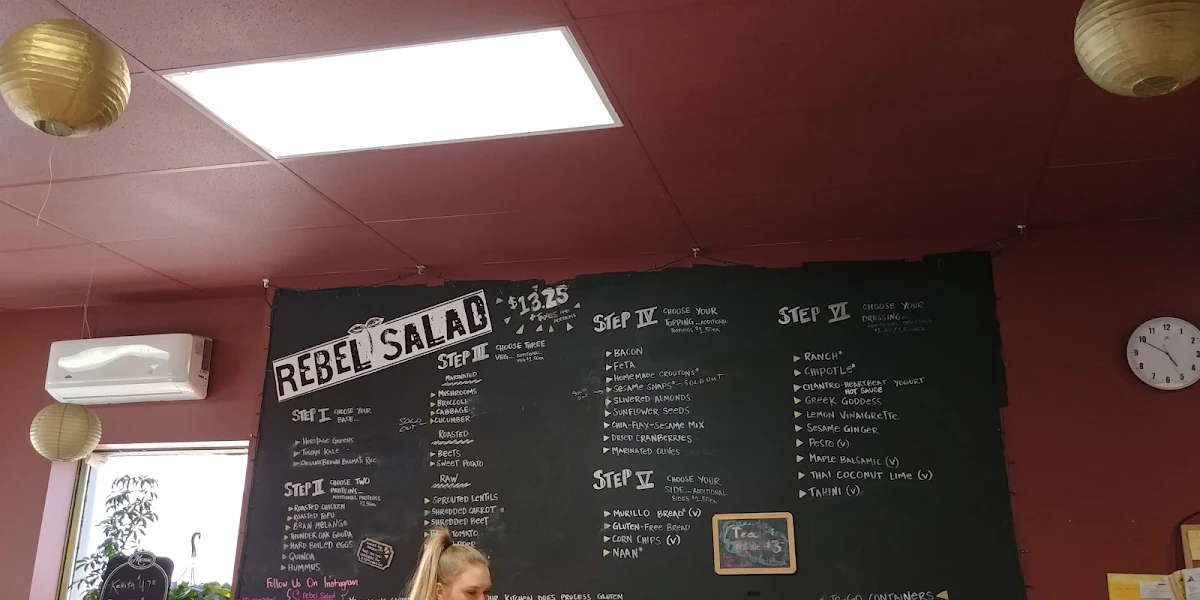 REBEL SALAD
$13.25
STEP I CHOOSE YOUR
BASE...
HERITAGE GREENS
TUSCAN KALE
ORGANIC BROWN BASMATI RICE
STEP II CHOOSE TWO
PROTEINS...
ADDITIONAL PROTEINS
ROASTED CHICKEN
ROASTED TOFU
BEAN MELANGE
THUNDER OAK GOUDA
HARD BOILED EGGS
QUINOA
HUMMUS
Follow Us On Instagram
@rebel.salad
STEP III CHOOSE THREE
VEG... ADDITIONAL
MARINATED
MUSHROOMS
BROCCOLI
CABBAGE
SOLD OUT
CUCUMBER
ROASTED
BEETS
SWEET POTATO
RAW
SPROUTED LENTILS
SHREDDED CARROT
SHREDDED BEET
TOMATO
STEP IV CHOOSE YOUR
TOPPING... ADDITIONAL
TOPPINGS $1.50ea
BACON
FETA
HOMEMADE CROUTONS*
SESAME SNAPS* - SOLD OUT
SLIVERED ALMONDS
SUNFLOWER SEEDS
CHIA-FLAX-SESAME MIX
DRIED CRANBERRIES
MARINATED OLIVES
STEP V CHOOSE YOUR
SIDE... ADDITIONAL
SIDES $1.50ea
MURILLO BREAD* (V)
GLUTEN-FREE BREAD
CORN CHIPS (V)
NAAN*
STEP VI CHOOSE YOUR
DRESSING...
RANCH*
CHIPOTLE*
CILANTRO-HEARTBEAT YOGURT
HOT SAUCE
GREEK GODDESS
LEMON VINAIGRETTE
SESAME GINGER
PESTO (V)
MAPLE BALSAMIC (V)
THAI COCONUT LIME (V)
TAHINI (V)
Tea
$3
Menu
OUR KITCHEN DOES PROCESS GLUTEN
TO-GO CONTAINERS